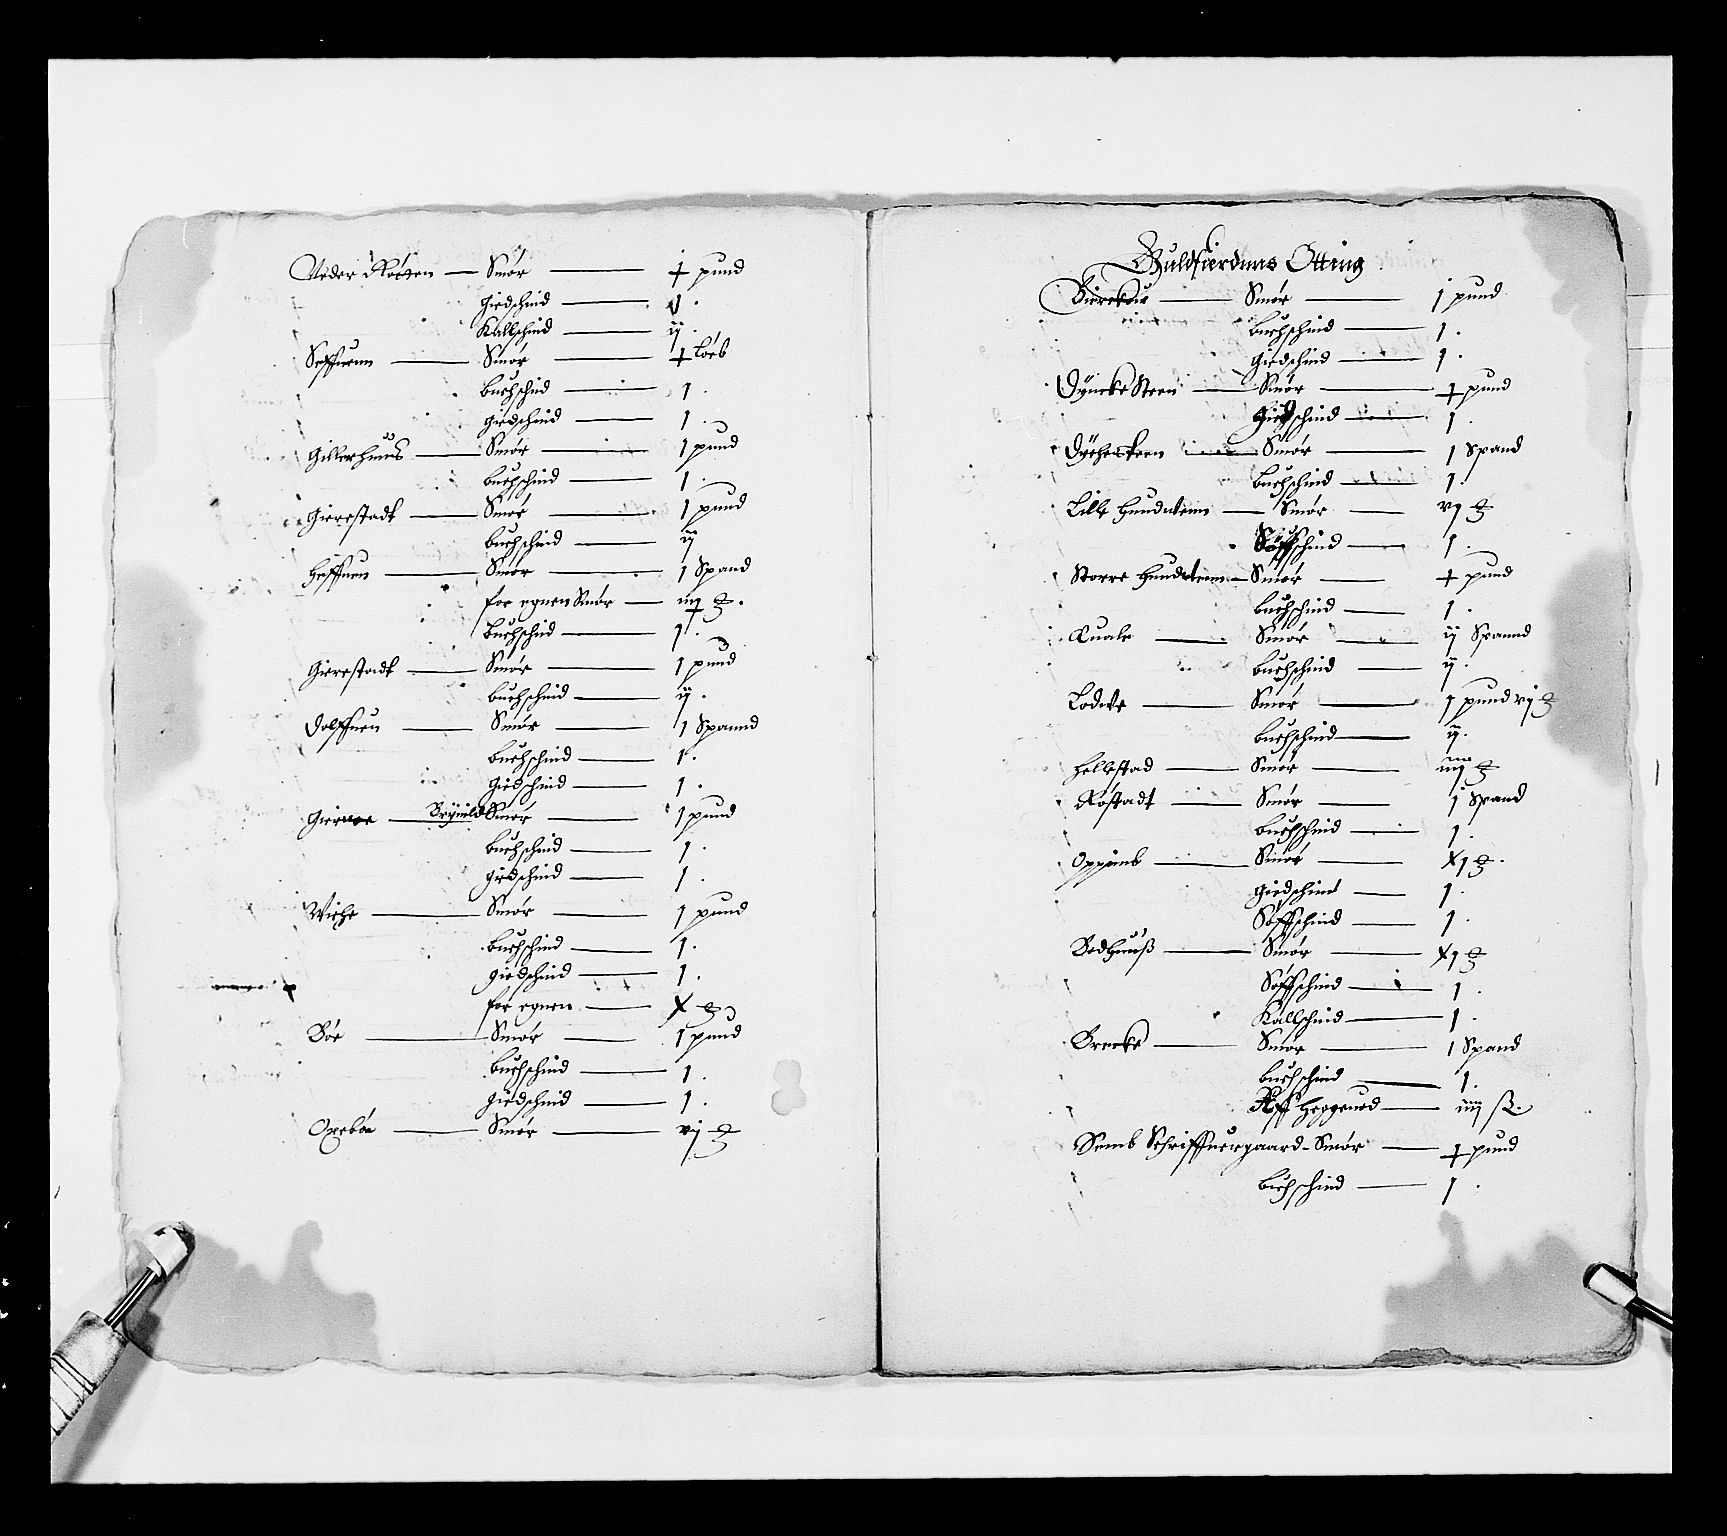 Neder Røtten — Smør — ɉ pund
giedschind — ɉ.
Kallschind — ij.
Seffuenn — Smør — ɉ Løeb
buchschind — 1.
giedschind — 1.
Gillerhuus — Smør — 1 pund
buchschind — 1.
Gierestadt — Smør — 1 pund
buchschind — ij
Heffnen — Smør — 1 Spand
for egnen Smør — iiij
Buchschind — 1.
Gierestadt — Smør — 1 pund
buchschind — ij.
Dolffuen — Smør — 1 Spannd
buchschind — 1.
giedschind — 1.
Brynild Smør — 1 pund
buchschind — 1.
giedschind — 1.
Wiche — Smør — 1 pund
buchschind — 1.
giedschind — 1.
for egnen — x
Bøe — Smør — 1 pund
buchschind — 1.
giedschind — 1.
Oxebøe — Smør — vij
Guldfierdings Otting
Bierckow — Smør — j pund
buchschind — 1.
giedschind — 1.
Dyncke Steen — Smør — ɉ pund
giedschind — 1.
Dychesteen — Smør — 1 Spand
buchschind — 1.
Lille Hundsteenn — Smør — vj
Søffschind — 1.
Storre Hundsteenn — Smør — ɉ pund
buchschind — 1.
Quale — Smør — ij Spannd
buchschind — ij.
Lodwe — Smør — 1 pund vij
buchschind — ij.
Hellestad — Smør — iiij
Røstadt — Smør — 1 Spand
buchschind — 1.
Oppemb — Smør — xj
giedschind — 1.
Søffschind — 1.
Bedhuuß — Smør — xj
Søffschind — 1.
Kallschind — 1.
Brecke — Smør — 1 Spand
buchschind — 1.
Aff Heggenes — iiij ß.
Semb Schriffuergaard - Smør — ɉ pund
buchschind — 1.